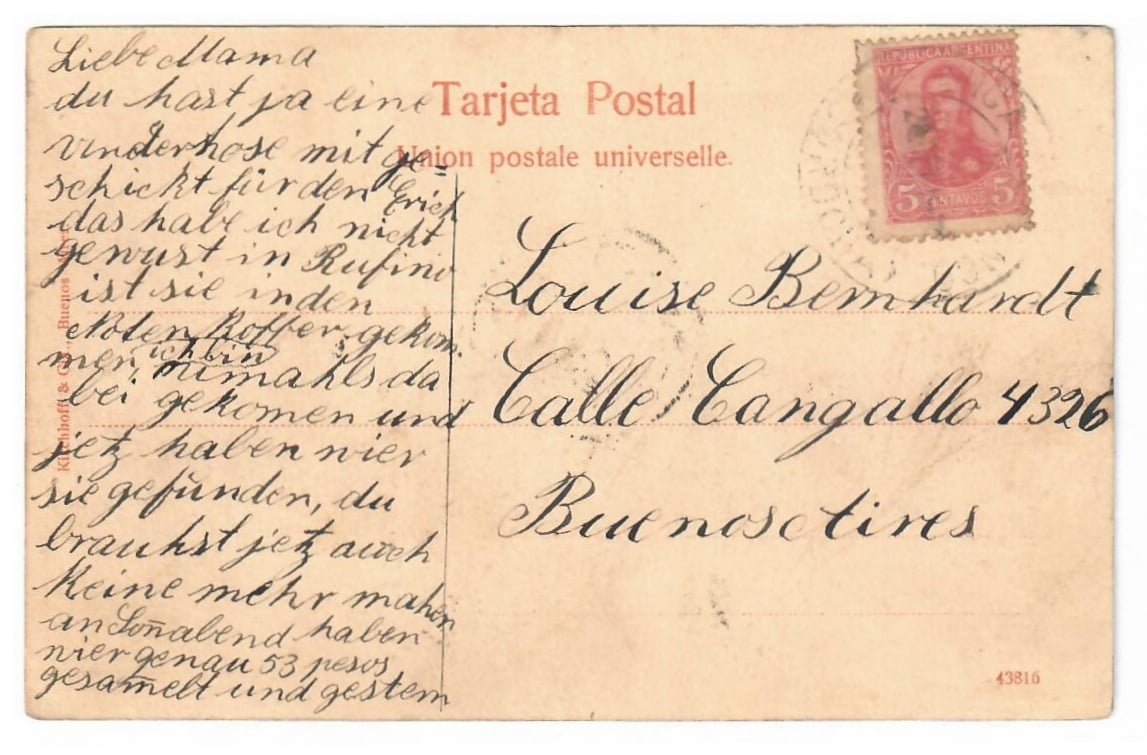 Liebe Mama
du hast ja eine
Underhose mit ge=
schickt für den Erich
das habe ich nicht
gewust in Rufino
ist sie in den
Noten Koffer gekom
men, ich bin nimahls da
bei gekomen und
jetz haben wier
sie gefunden, du
brauhst jetz auch
Keine mehr mahen
an Soñabend haben
wier genau 53 pesos
gesam̃elt und gestern
Tarjeta Postal
Union postale universelle.
REPUBLICA ARGENTINA
5 CENTAVOS 5
Louise Bernhardt
Calle Cangallo 4326
Buenos Aires
Kirchhoff & Buenos
43816